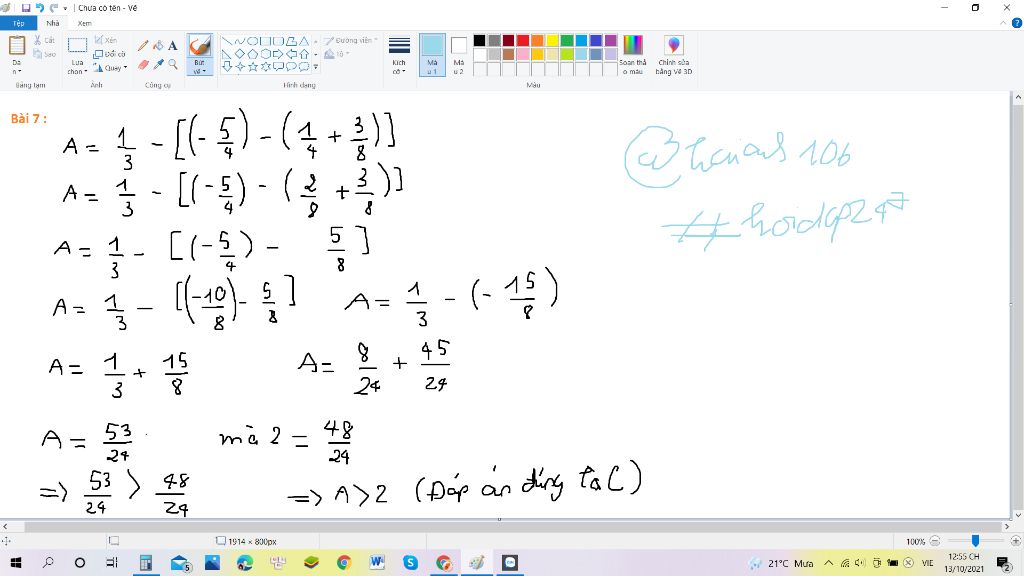 Chưa có tên - Vẽ
Tệp Nhà Xem
Dán Cắt Sao Lựa chọn Xén Đổi cỡ Quay Bút vẽ Đường viền Tô Kích cỡ Màu 1 Màu 2 Soạn thảo màu Chỉnh sửa bằng Vẽ 3D
Bảng tạm Ảnh Công cụ Hình dạng Màu
Bài 7 :
A = 1/3 - [(-5/4) - (1/4 + 3/8)]
A = 1/3 - [(-5/4) - (2/8 + 3/8)]
A = 1/3 - [(-5/4) - 5/8]
A = 1/3 - [(-10/8) - 5/8] A = 1/3 - (-15/8)
A = 1/3 + 15/8 A = 8/24 + 45/24
A = 53/24 mà 2 = 48/24
=> 53/24 > 48/24 => A > 2 (Đáp án đúng là C)
#hoidap247
1914 × 800px 100%
21°C Mưa VIE 12:55 CH
13/10/2021